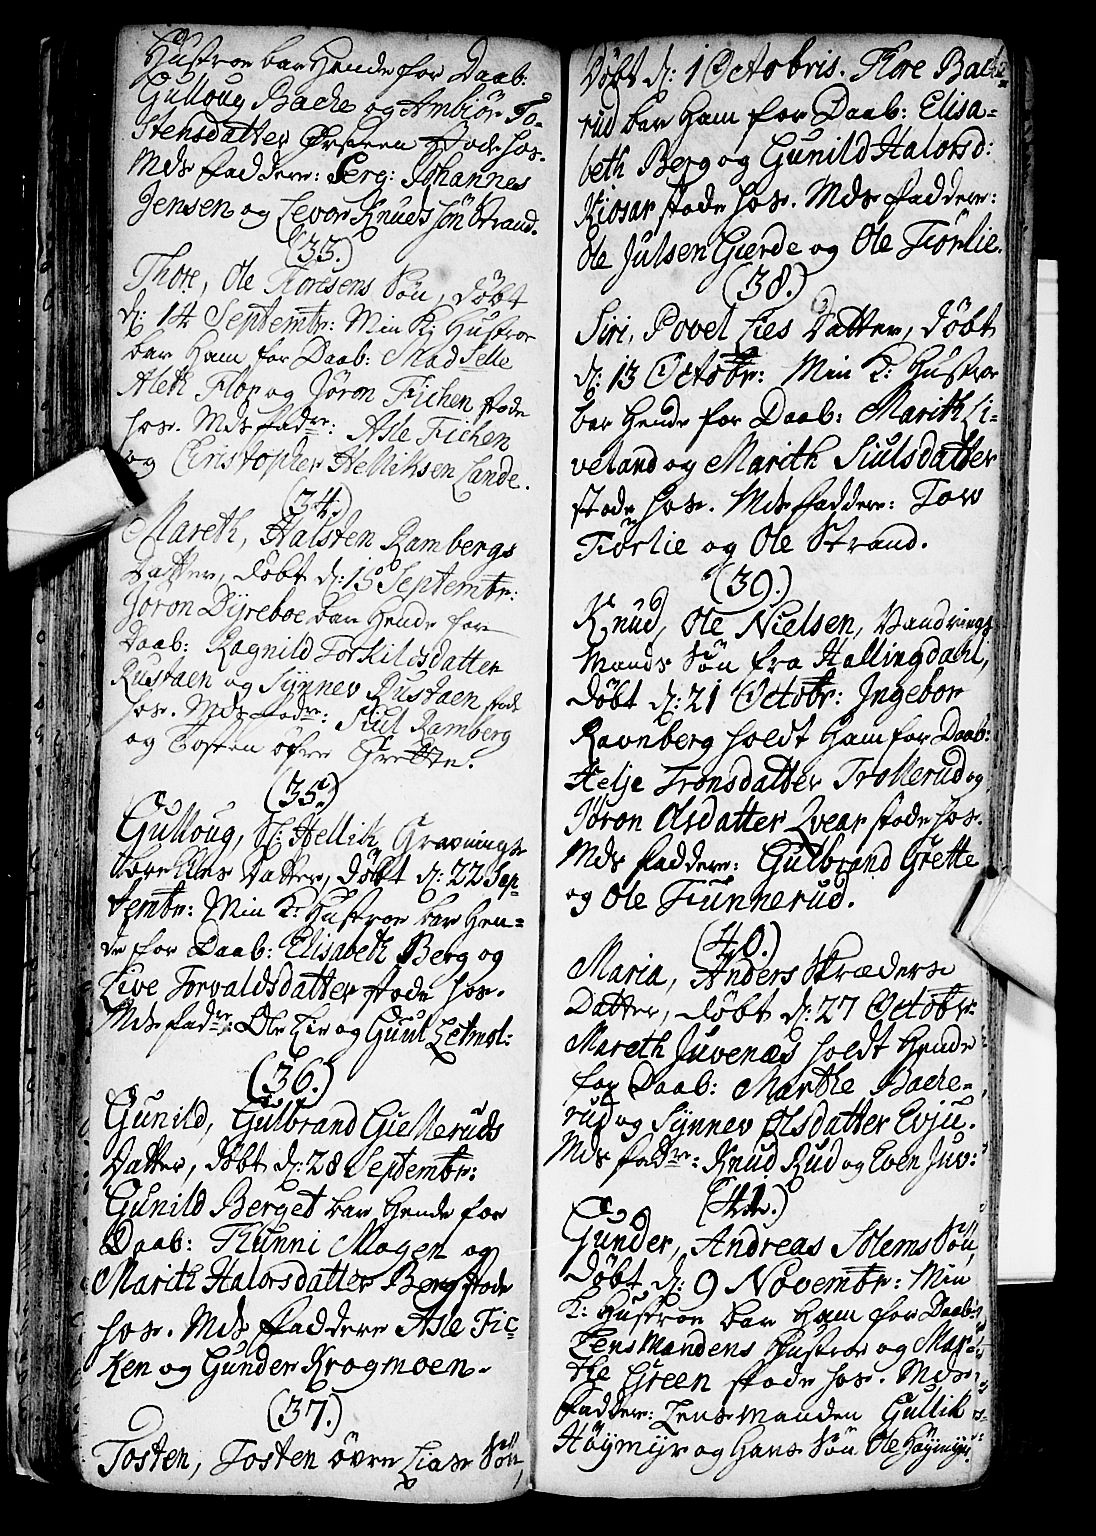 Hustroe bar Hende for Daab:
Gulloug Bache og Ambiør To-
stensdatter Ørsteen stode hos.
Mds faddere: Serg: Johannes
Jensen og Levor Knuds Søn Strand.
(33.)
Thore, Ole Thoresens Søn, døbt
d: 14 Septembr: Min K: Hustroe
bar Ham for Daab: Mad Selle
Aleth Flor og Jøron Fichen stode
hos. Mds fadre: Asle Fichen
og Christopher Helliksen Lande.
(34.)
Mareth, Halsten Rambergs
Datter, døbt d: 15 Septembr:
Jøron Dÿreboe bar Hende for
Daab: Ragnild Torkildsdatter
Rustaen og Sÿnnev Rustaen stode
hos. Mds fadre: Siul Ramberg
og Tosten øfre Grette.
(35.)
Gulloug, Sl: Hellik Gravnings-
Datter, døbt d: 22 Sep-
tembr: Min K: Hustroe bar Hen-
de for Daab: Elisabeth Berg og
Live Torvaldsdatter stode hos.
Mds fadre: Ole Lie og Guul Letmol:
(36.)
Gunild, Gulbrand Gielleruds
Datter, døbt d: 28 Septembr:
Gunild Berget bar Hende for
Daab: Thunni Mogen og
Marith Halorsdatter Berg stode
hos. Mds faddere Asle Fic-
ken og Gunder Krogmoen.
(37.)
Tosten, Tosten övre Liase Søn,
Døbt d: 1 Octobris. Thore Bache-
rud bar Ham for Daab: Elisa-
beth Berg og Gunild Halorsd:
Kiosar stode hos. Mds faddere:
Ole Julsen Gierde og Ole Fiörlie.
(38.)
Siri, Povel Lies Datter, døbt
d: 13 Octobr: Min K: Hustroe
bar Hende for Daab: Marith Li-
veland og Marith Siulsdatter
stode hos. Mds faddere: Tov
Fiørlie og Ole Strand.
(39.)
Knud, Ole Nielsen, Vandrings
Mands Søn fra Hallingdahl,
døbt d: 21 Octobr: Ingebor
Ravnberg holdt Ham for Daab:
Helje Tronsdatter Trollerud og
Jøron Olsdatter Qvear stode hos.
Mds faddere: Gulbrand Grette
og Ole Funnerud.
(40.)
Maria, Anders Skræders
Datter, døbt d: 27 Octobr:
Mareth Juvenæs holdt Hende
for Daab: Marthe Bache-
rud og Sÿnnev Olsdatter Evju.
Mds fadre: Knud Rud og Even Juv:
(41.)
Gunder, Andreas Solems Søn,
døbt d: 9 Novembr: Min
K: Hustroe bar Ham for Daab:
Lensmandens Hustroe og Mar-
the Green stode hos. Mds
faddere: Lensmanden Gullik
Høÿmÿr og Hans Søn Ole Høÿmÿr.